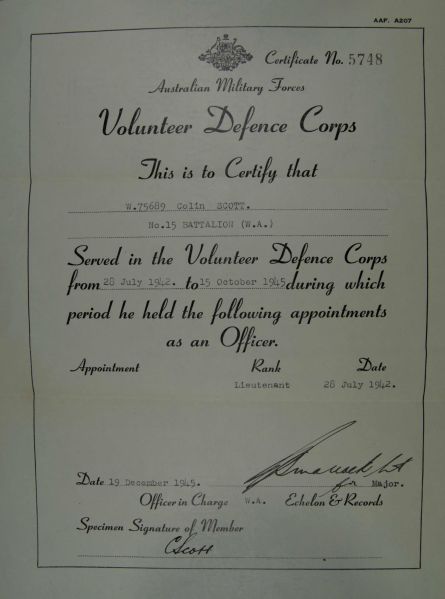 AAF. A207
Certificate No. 5748
Australian Military Forces
Volunteer Defence Corps
This is to Certify that
W.75689 Colin SCOTT.
No.15 BATTALION (W.A.)
Served in the Volunteer Defence Corps
from 28 July 1942. to 15 October 1945 during which
period he held the following appointments
as an Officer.
Appointment Rank Date
Lieutenant 28 July 1942.
Date 19 December 1945. for Major.
Officer in Charge W.A. Echelon & Records
Specimen Signature of Member
CScott